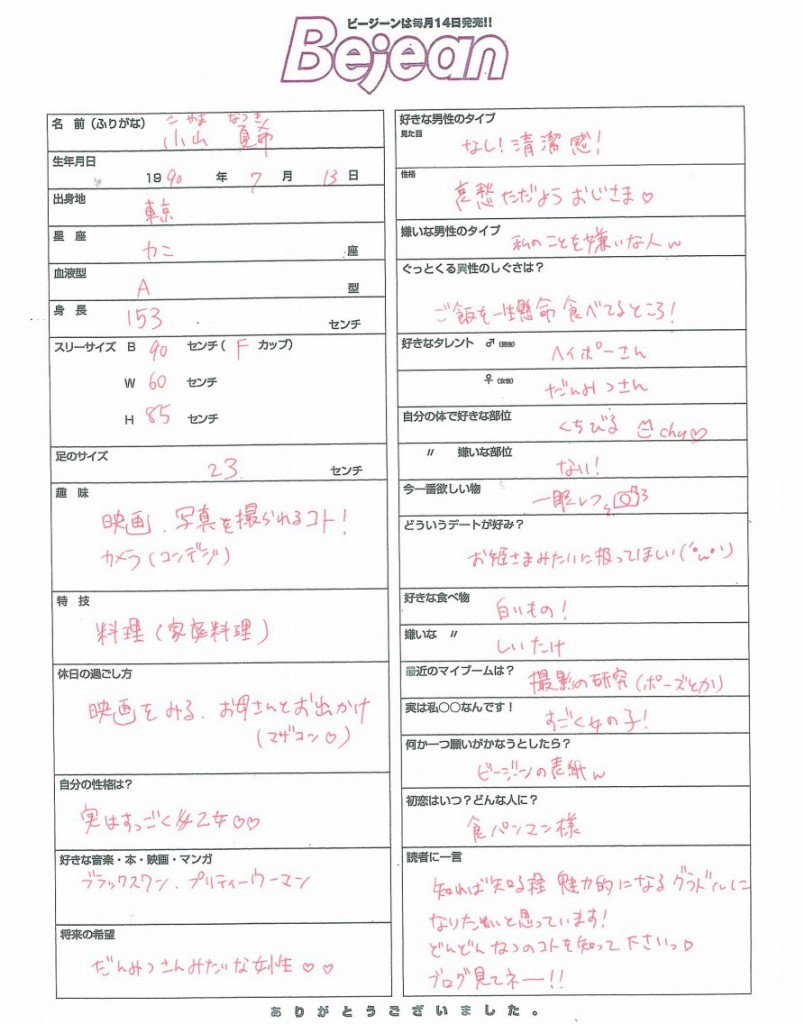 ビージーンは毎月14日発売!!
Bejean
名 前(ふりがな) こやま なつき
小山 夏希
生年月日
1990 年 7 月 13 日
出身地
東京
星 座
カニ 座
血液型
A 型
身 長
153 センチ
スリーサイズ B 90 センチ( F カップ)
W 60 センチ
H 85 センチ
足のサイズ
23 センチ
趣 味
映画、写真を撮られるコト!
カメラ(コンデジ)
特 技
料理(家庭料理)
休日の過ごし方
映画をみる、お母さんとお出かけ
(マザコン♡)
自分の性格は?
実はすっごく乙女♡♡
好きな音楽・本・映画・マンガ
ブラックスワン、プリティーウーマン
将来の希望
だんみつさんみたいな女性♡♡
好きな男性のタイプ
見た目
なし!清潔感!
性格
哀愁ただようおじさま♡
嫌いな男性のタイプ
私のことを嫌いな人w
ぐっとくる異性のしぐさは?
ご飯を一生懸命食べてるところ!
好きなタレント ♂(男性) ヘイポーさん
♀(女性) だんみつさん
自分の体で好きな部位
くちびる chu♡
〃 嫌いな部位
ない!
今一番欲しい物
一眼レフ
どういうデートが好み?
お姫さまみたいに扱ってほしい(´・ω・`)
好きな食べ物
白いもの!
嫌いな 〃
しいたけ
最近のマイブームは?
撮影の研究(ポーズとか)
実は私○○なんです!
すごく女の子!
何か一つ願いがかなうとしたら?
ビージーンの表紙w
初恋はいつ?どんな人に?
食パンマン様
読者に一言
知れば知る程 魅力的になるグラドルに
なりたいと思っています!
どんどんなつのコトを知って下さいっ♡
ブログ見てネー!!
ありがとうございました。